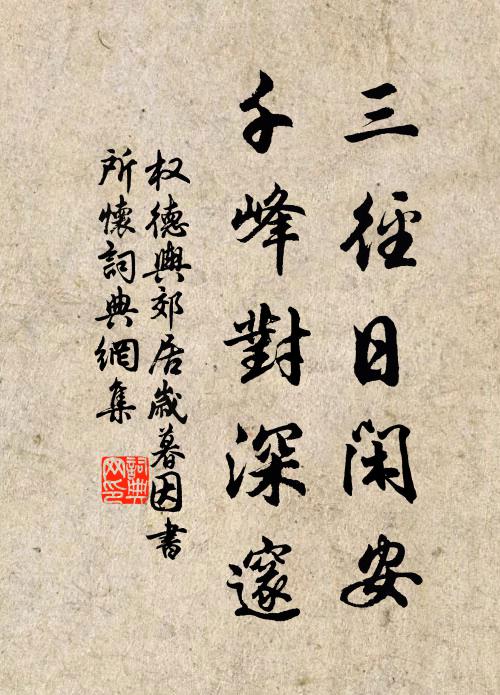 三徑日閑安
千峰對深邃
权德輿郊居歲暮因書
所懷詞典網集
詞典網印